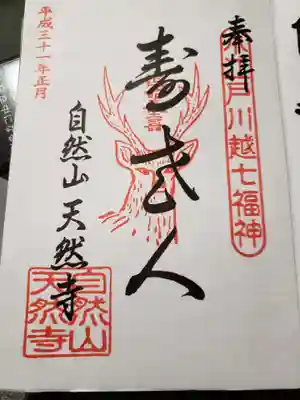 奉拝
小江戸川越七福神
寿老人
自然山 天然寺
平成三十一年正月
自然山
天然寺